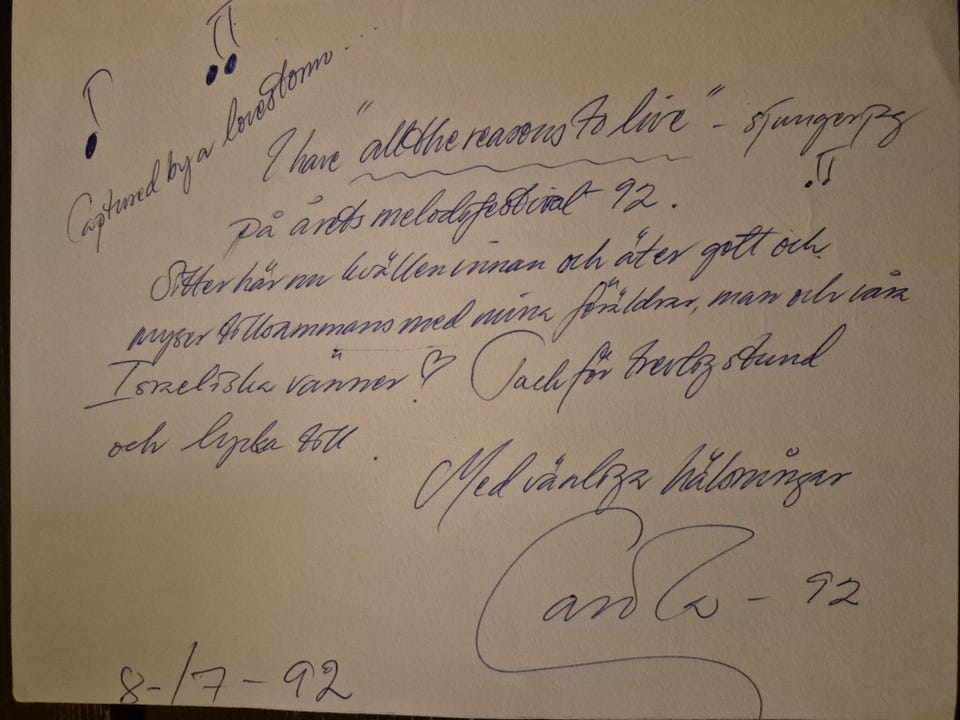 Captured by a lovestorm...
I have "all the reasons to live" - sjunger jag
på årets melodifestival 92.
Sitter här nu kvällen innan och äter gott och
myser tillsammans med mina föräldrar, man och våra
Israeliska vänner ♡ Tack för trevlig stund
och lycka till.
Med vänliga hälsningar
Carola - 92
8-/7-92